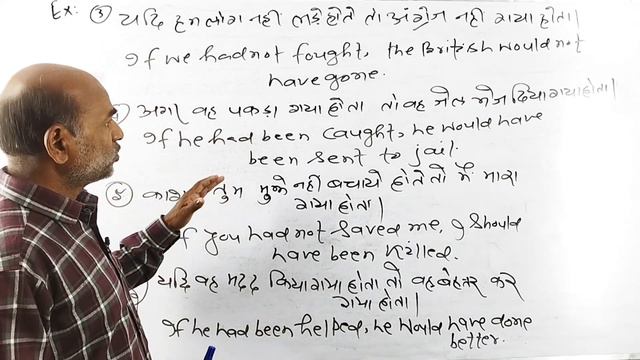 Ex: ③ यदि हम लोग नहीं लड़े होते तो अंग्रेज नहीं गया होता।
If we had not fought, the British would not
have gone.
अगर वह पकड़ा गया होता तो वह जेल भेज दिया गया होता।
If he had been caught, he would have
been sent to jail.
⑤ तुम मुझे नहीं बचाये होते तो मैं मारा
गया होता।
If you had not saved me, I should
have been killed.
यदि वह मदद किया गया होता तो वह बेहतर कर
गया होता।
If he had been helped, he would have done
better.